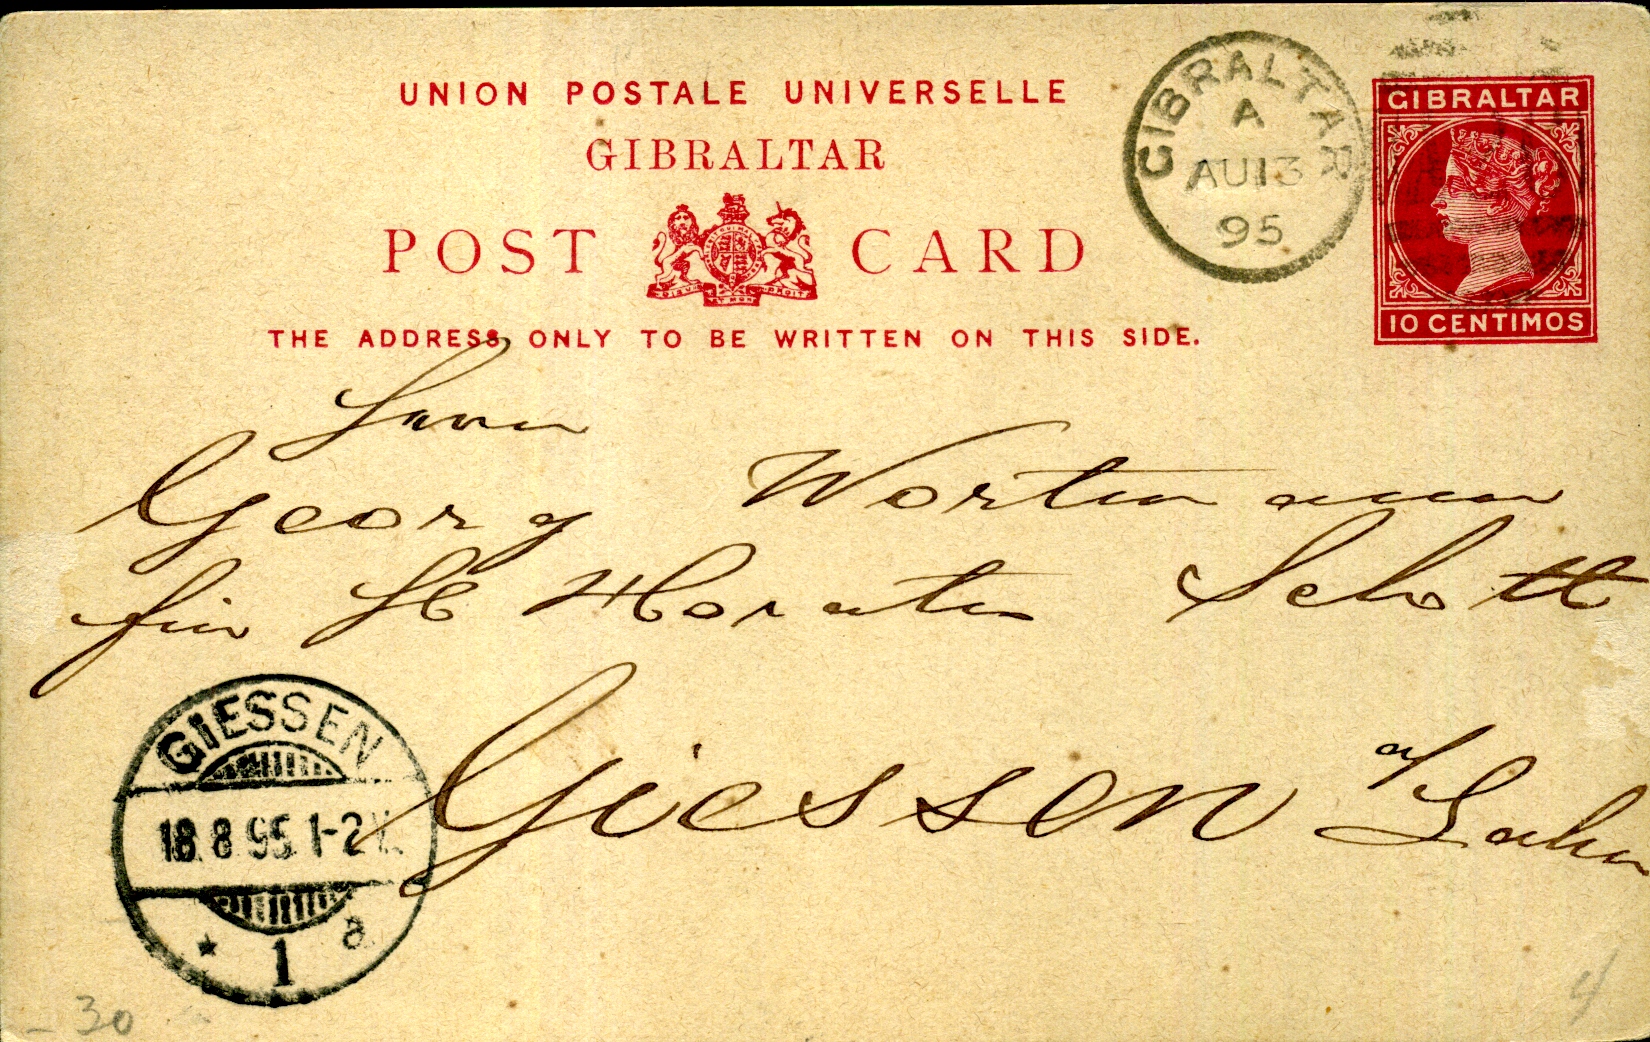 UNION POSTALE UNIVERSELLE
GIBRALTAR
POST CARD
DIEU ET MON DROIT
THE ADDRESS ONLY TO BE WRITTEN ON THIS SIDE.
GIBRALTAR
A
AU 13
95
GIBRALTAR
10 CENTIMOS
Herrn
Georg Wortmann
Schott
Giessen a/Lahn
GIESSEN
18.8.95 1-2
* 1 a
- 30
4